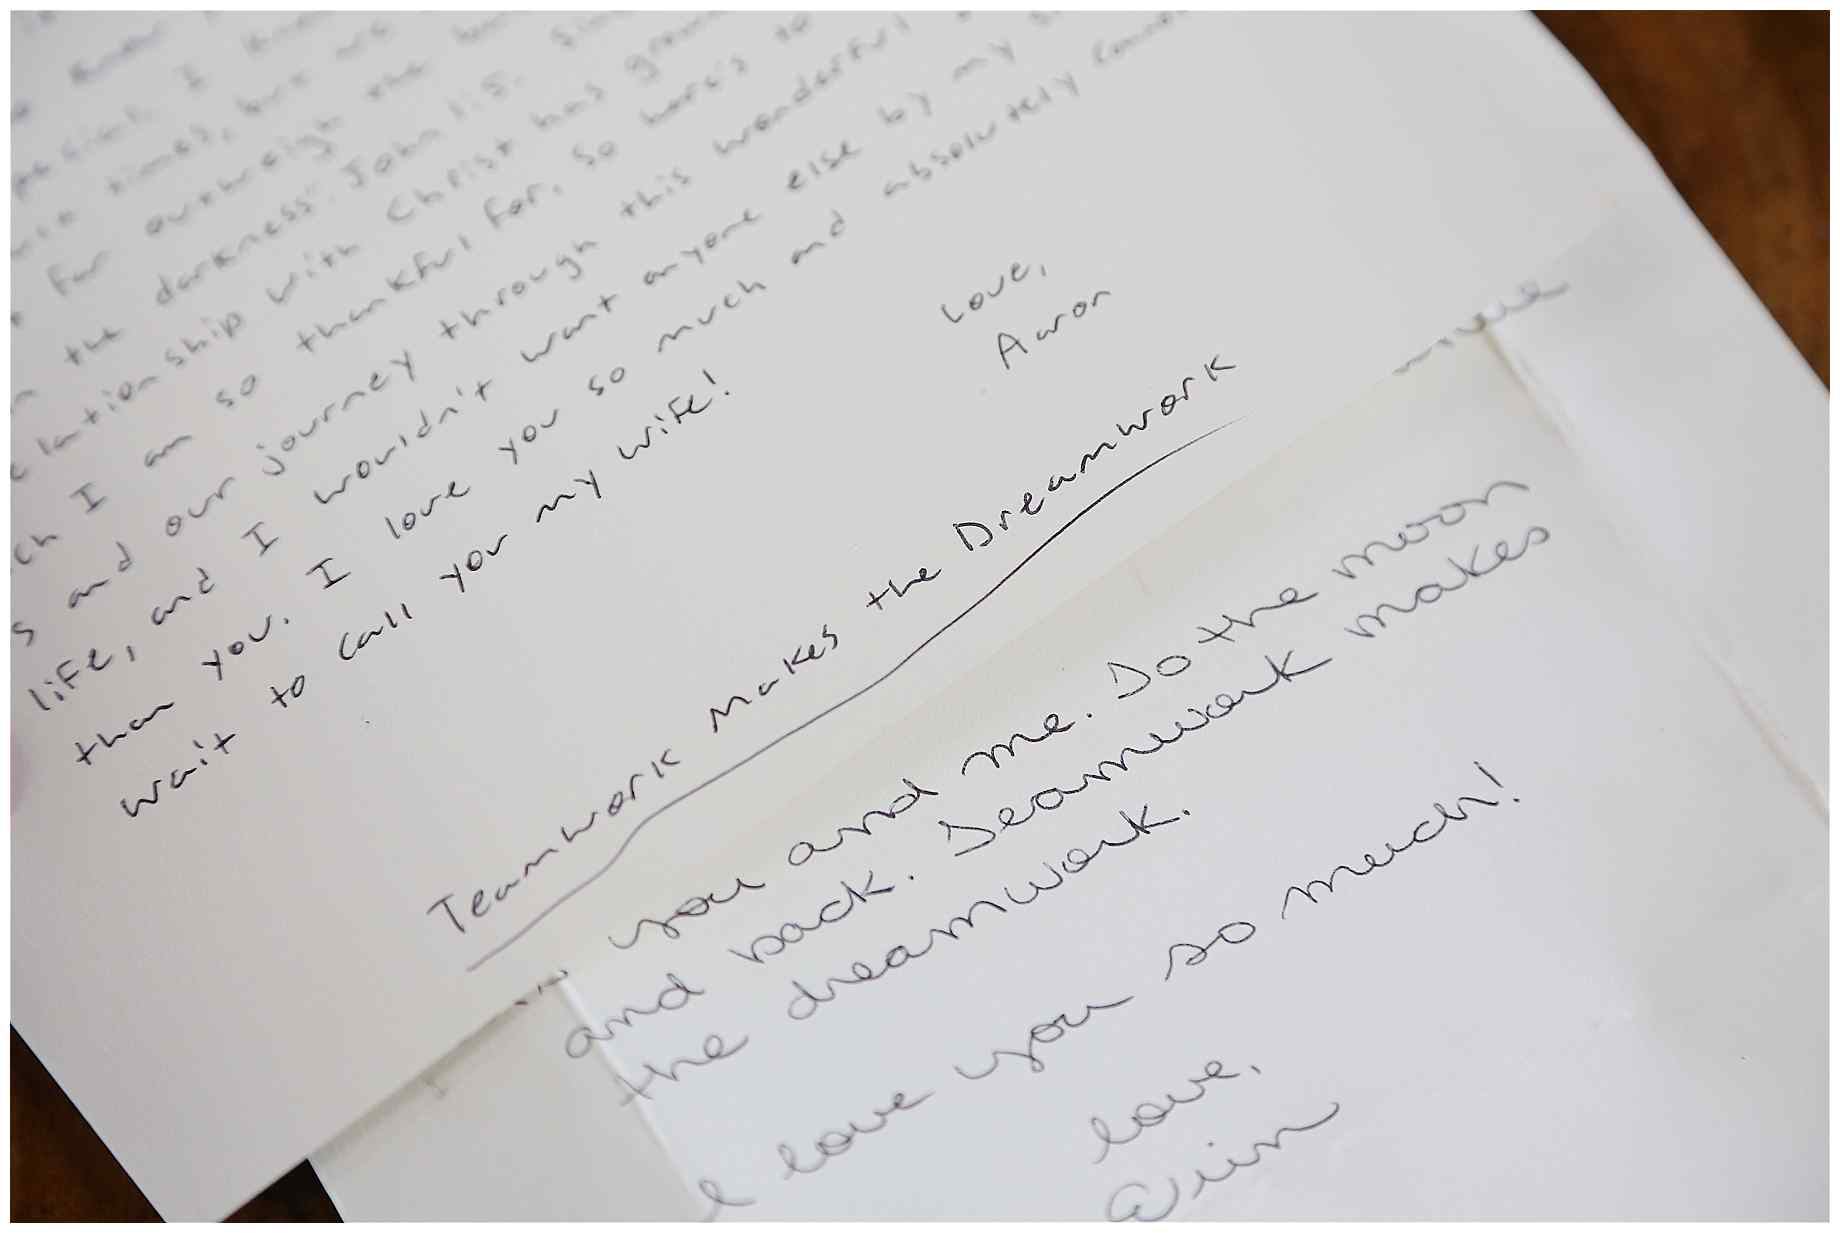 know
special. I know
times, but we
far outweigh the
the darkness". John 1:5.
relationship with Christ has grown
I am so thankful for, so here's to
and our journey through this wonderful
life, and I wouldn't want anyone else by my
than you. I love you so much and absolutely cannot
wait to call you my wife!
Love,
Aaron
Teamwork Makes the Dreamwork
you and me. To the moon
and back. Teamwork makes
the dreamwork.
I love you so much!
love,
Erin